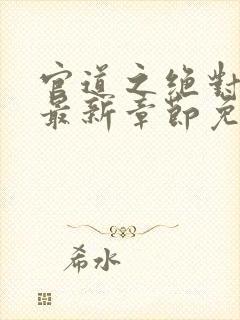 官道之绝对
最新章节免
希水